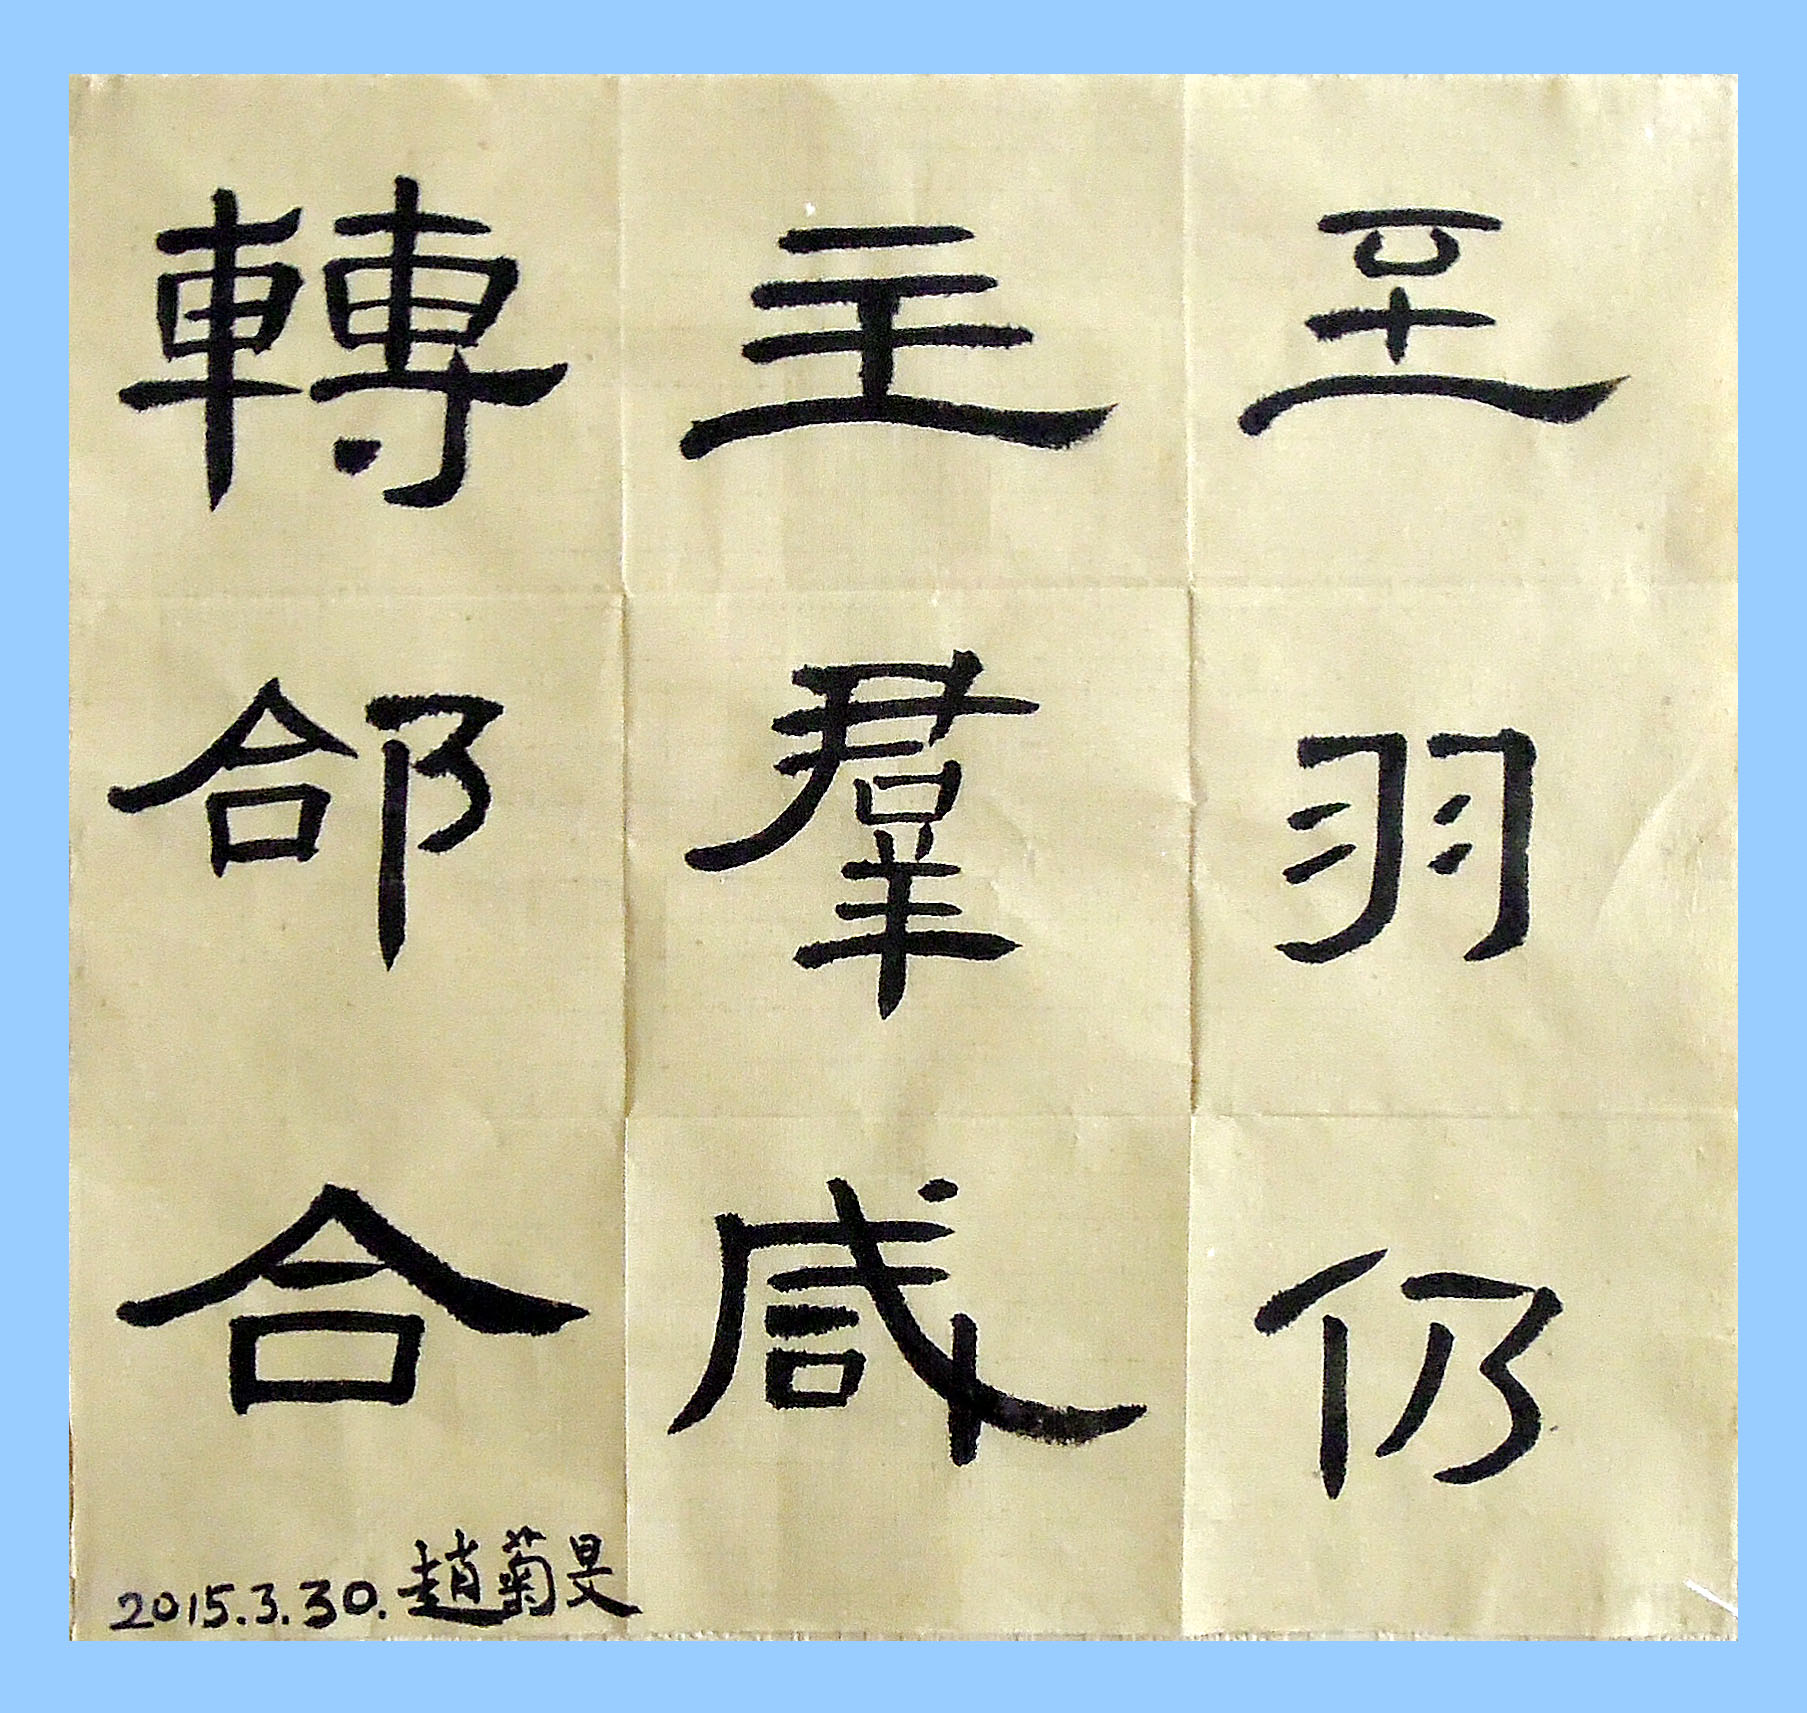 至羽仍
主羣
轉郃合
2015.3.30. 趙菊旻